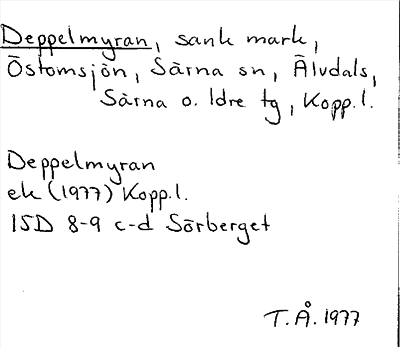 Deppelmyran, sank mark,
Östomsjön, Särna sn, Älvdals,
Särna o. Idre tg, Kopp.l.
Deppelmyran
ek (1977) Kopp.l.
15D 8-9 c-d Sörberget
T.Å. 1977